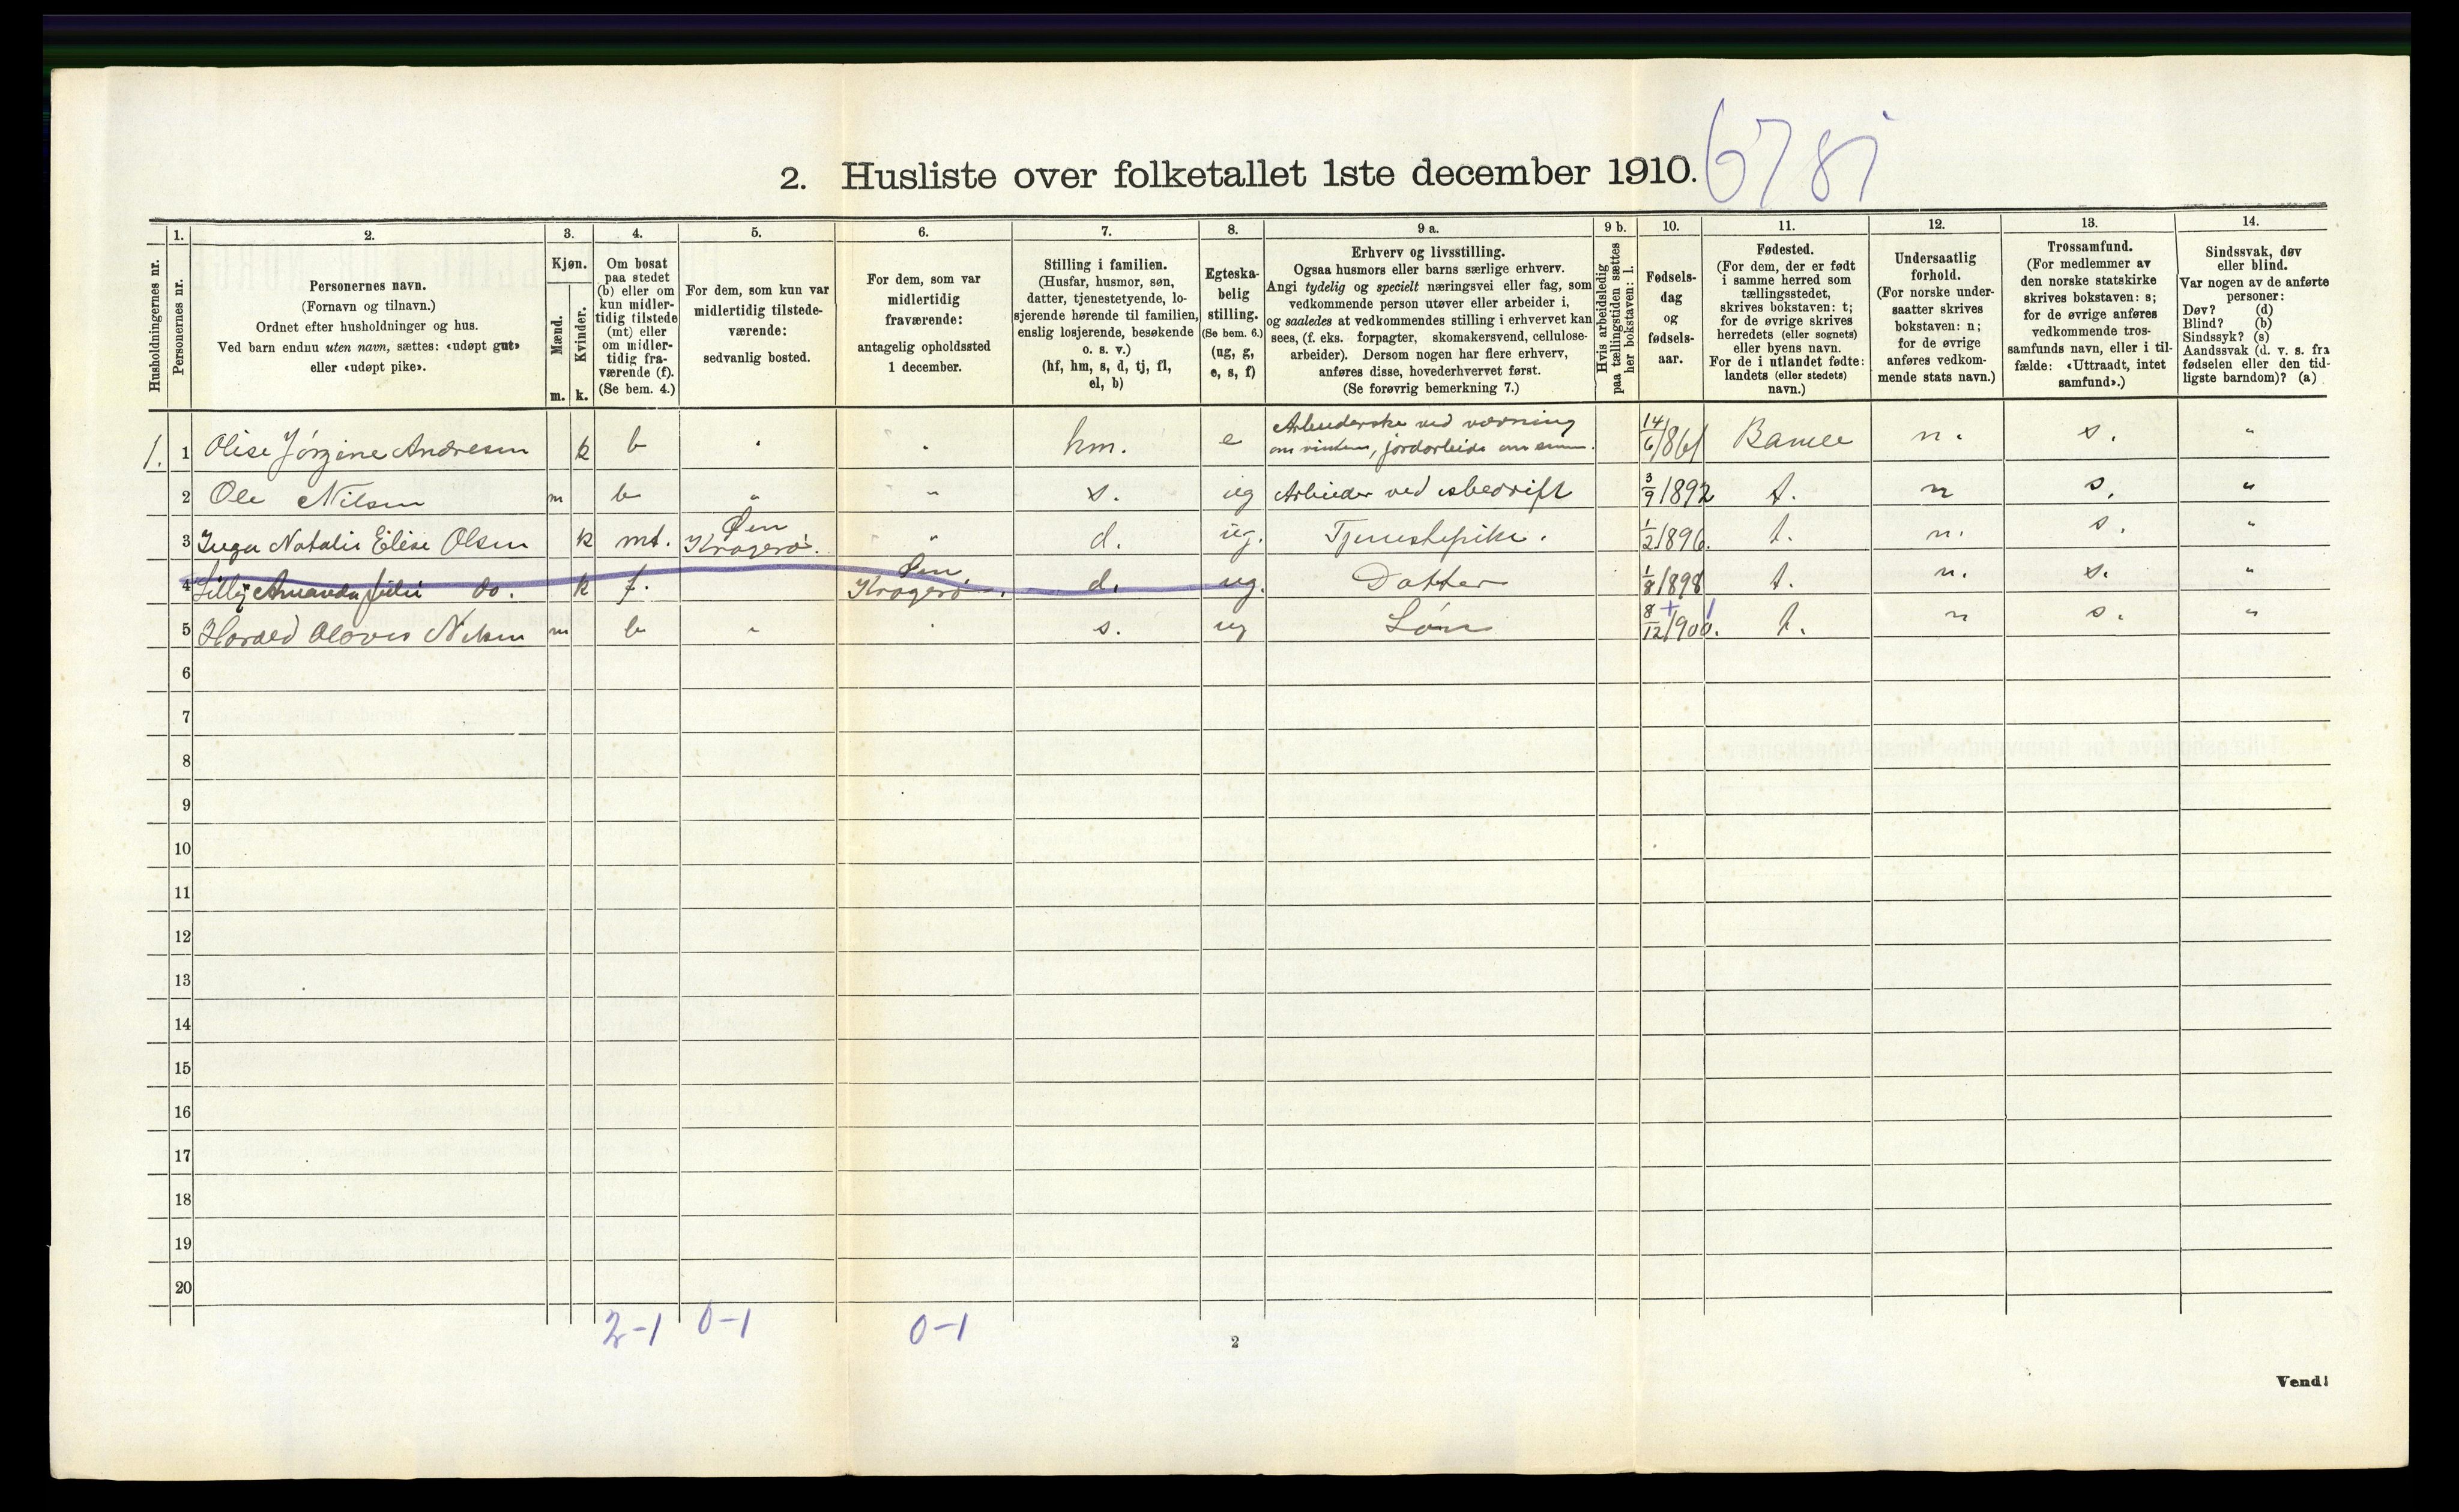 2. Husliste over folketallet 1ste december 1910.
Husholdningernes nr.
1.
Personernes nr.
2.
Personernes navn.
(Fornavn og tilnavn.)
Ordnet efter husholdninger og hus.
Ved barn endnu uten navn, sættes: «udøpt gut»
eller «udøpt pike».
3.
Kjøn.
Mænd.
Kvinder.
m. k.
4.
Om bosat
paa stedet
(b) eller om
kun midler-
tidig tilstede
(mt) eller
om midler-
tidig fra-
værende (f).
(Se bem. 4.)
5.
For dem, som kun var
midlertidig tilstede-
værende:
sedvanlig bosted.
6.
For dem, som var
midlertidig
fraværende:
antagelig opholdssted
1 december.
7.
Stilling i familien.
(Husfar, husmor, søn,
datter, tjenestetyende, lo-
sjerende hørende til familien,
enslig losjerende, besøkende
o. s. v.)
(hf, hm, s, d, tj, fl,
el, b)
8.
Egteska-
belig
stilling.
(Se bem. 6.)
(ug, g,
e, s, f)
9 a.
Erhverv og livsstilling.
Ogsaa husmors eller barns særlige erhverv.
Angi tydelig og specielt næringsvei eller fag, som
vedkommende person utøver eller arbeider i,
og saaledes at vedkommendes stilling i erhvervet kan
sees, (f. eks. forpagter, skomakersvend, cellulose-
arbeider). Dersom nogen har flere erhverv,
anføres disse, hovederhvervet først.
(Se forøvrig bemerkning 7.)
9 b.
Hvis arbeidsledig
paa tællingstiden sættes
her bokstaven: l.
10.
Fødsels-
dag
og
fødsels-
aar.
11.
Fødested.
(For dem, der er født
i samme herred som
tællingsstedet,
skrives bokstaven: t;
for de øvrige skrives
herredets (eller sognets)
eller byens navn.
For de i utlandet fødte:
landets (eller stedets)
navn.)
12.
Undersaatlig
forhold.
(For norske under-
saatter skrives
bokstaven: n;
for de øvrige
anføres vedkom-
mende stats navn.)
13.
Trossamfund.
(For medlemmer av
den norske statskirke
skrives bokstaven: s;
for de øvrige anføres
vedkommende tros-
samfunds navn, eller i til-
fælde: «Uttraadt, intet
samfund».)
14.
Sindssvak, døv
eller blind.
Var nogen av de anførte
personer:
Døv? (d)
Blind? (b)
Sindssyk? (s)
Aandssvak (d. v. s. fra
fødselen eller den tid-
ligste barndom)? (a)
1. 1 Olise Jørgine Andresen k b " " hm. e Arbeiderske ved vævning om vinteren, jordarbeide om som. 14/6 1861 Bamle n. s. "
2 Ole Nilsen m b " " s. ug Arbeider ved isbedrift 3/9 1892 t. n s. "
3 Inga Natalie Elise Olsen k mt. Øen Kragerø. " d. ug. Tjenestepike. 1/2 1896. t. n. s. "
4 Lilly Amanda Julie do. k f. Øen Kragerø. d. ug. Datter 1/8 1898 t. n. s. "
5 Harald Olaves Nilsen m b " " s. ug Søn 8/12 1900. t. n s. "
6
7
8
9
10
11
12
13
14
15
16
17
18
19
20
2-1 0-1 0-1
2
Vend!